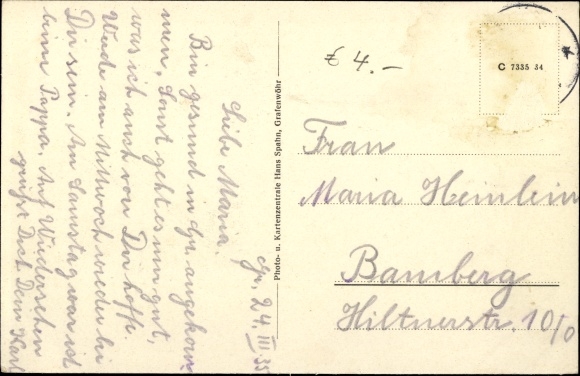 Gr. 24. III 35
Liebe Maria.
Bin gesund in Gr. angekom-
men, Sonst geht es mir gut,
was ich auch von Dir hoffe.
Werde am Mittwoch wieder bei
Dir sein. Am Samstag war ich
beim Pappa. Auf Wiedersehen
grüßt Dich Dein Karl
Photo- u. Kartenzentrale Hans Spahn, Grafenwöhr
£ 4.-
C 7335 34
Frau
Maria Heinlein
Bamberg
Hiltnerstr. 10/0